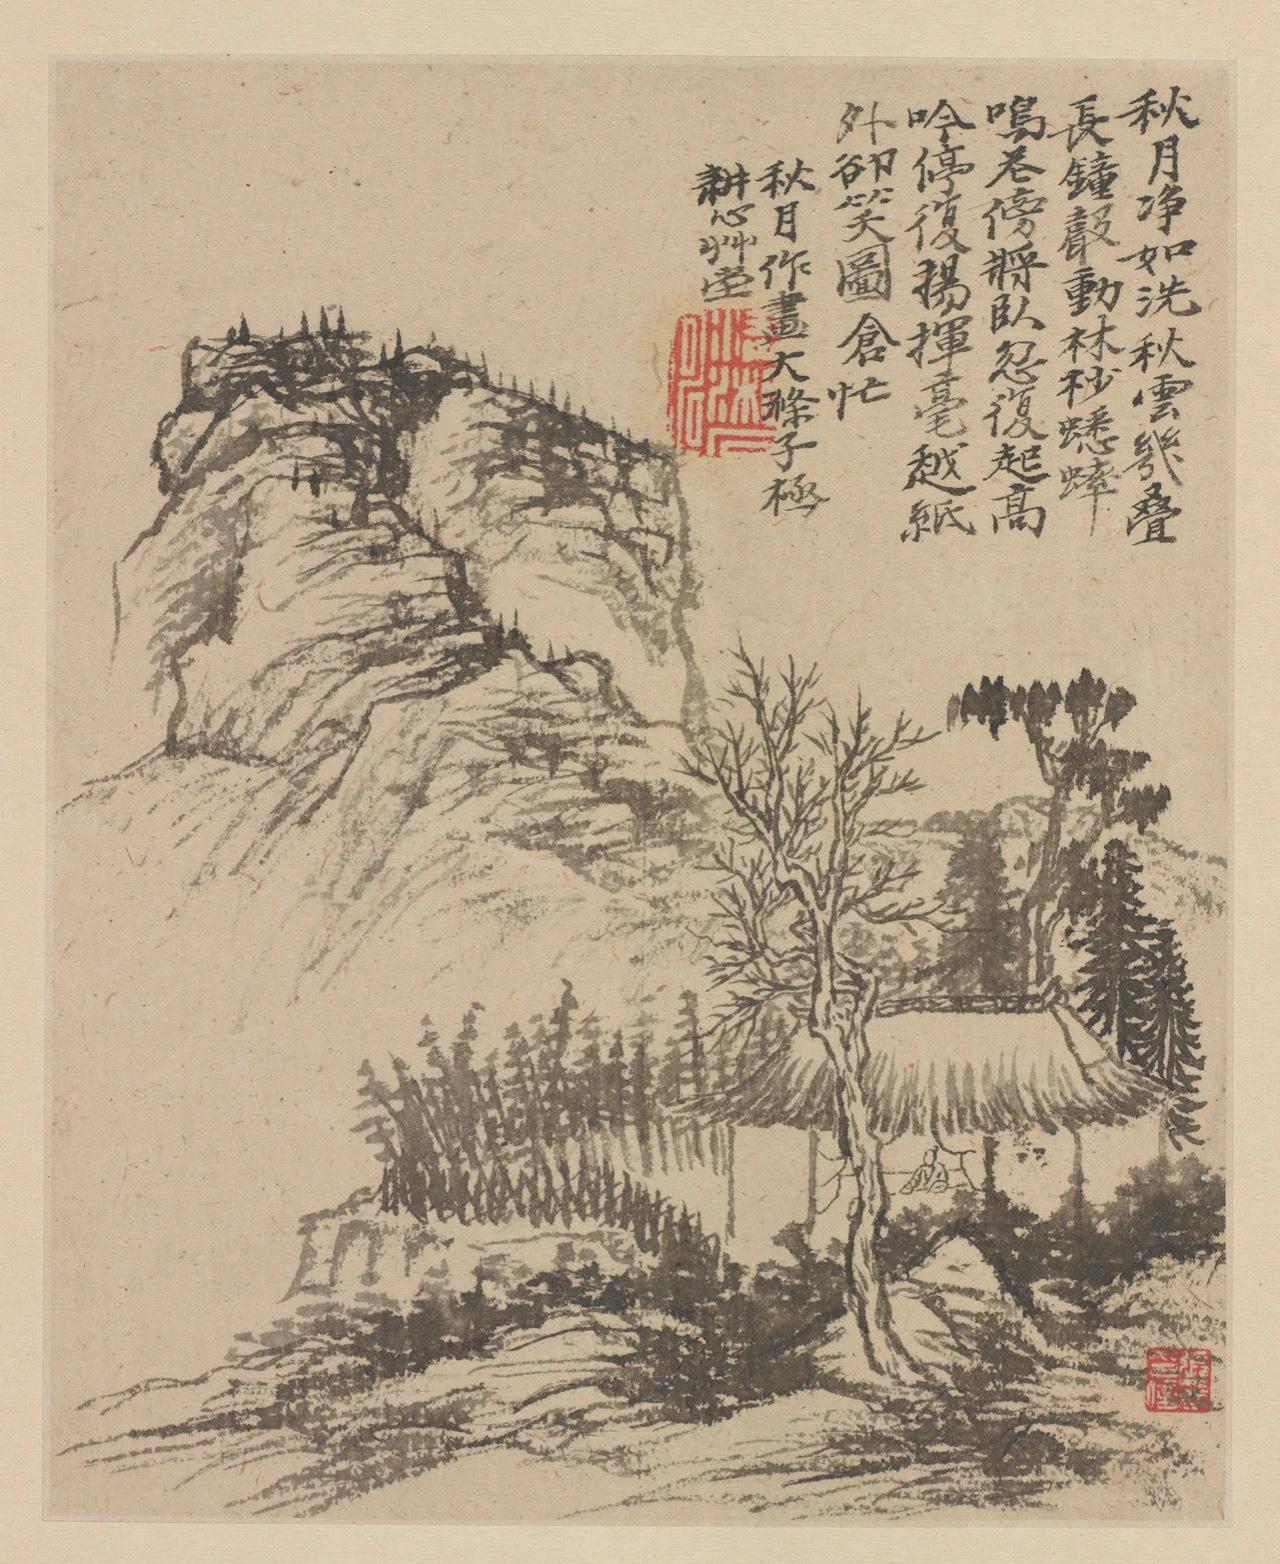 秋月净如洗秋雲幾叠
長鐘聲動林杪蟋蟀
鳴巷傍將臥忽復起高
吟停復揚揮毫越紙
外卻笑圖倉忙
秋月作畫大滌子極
耕心艸堂